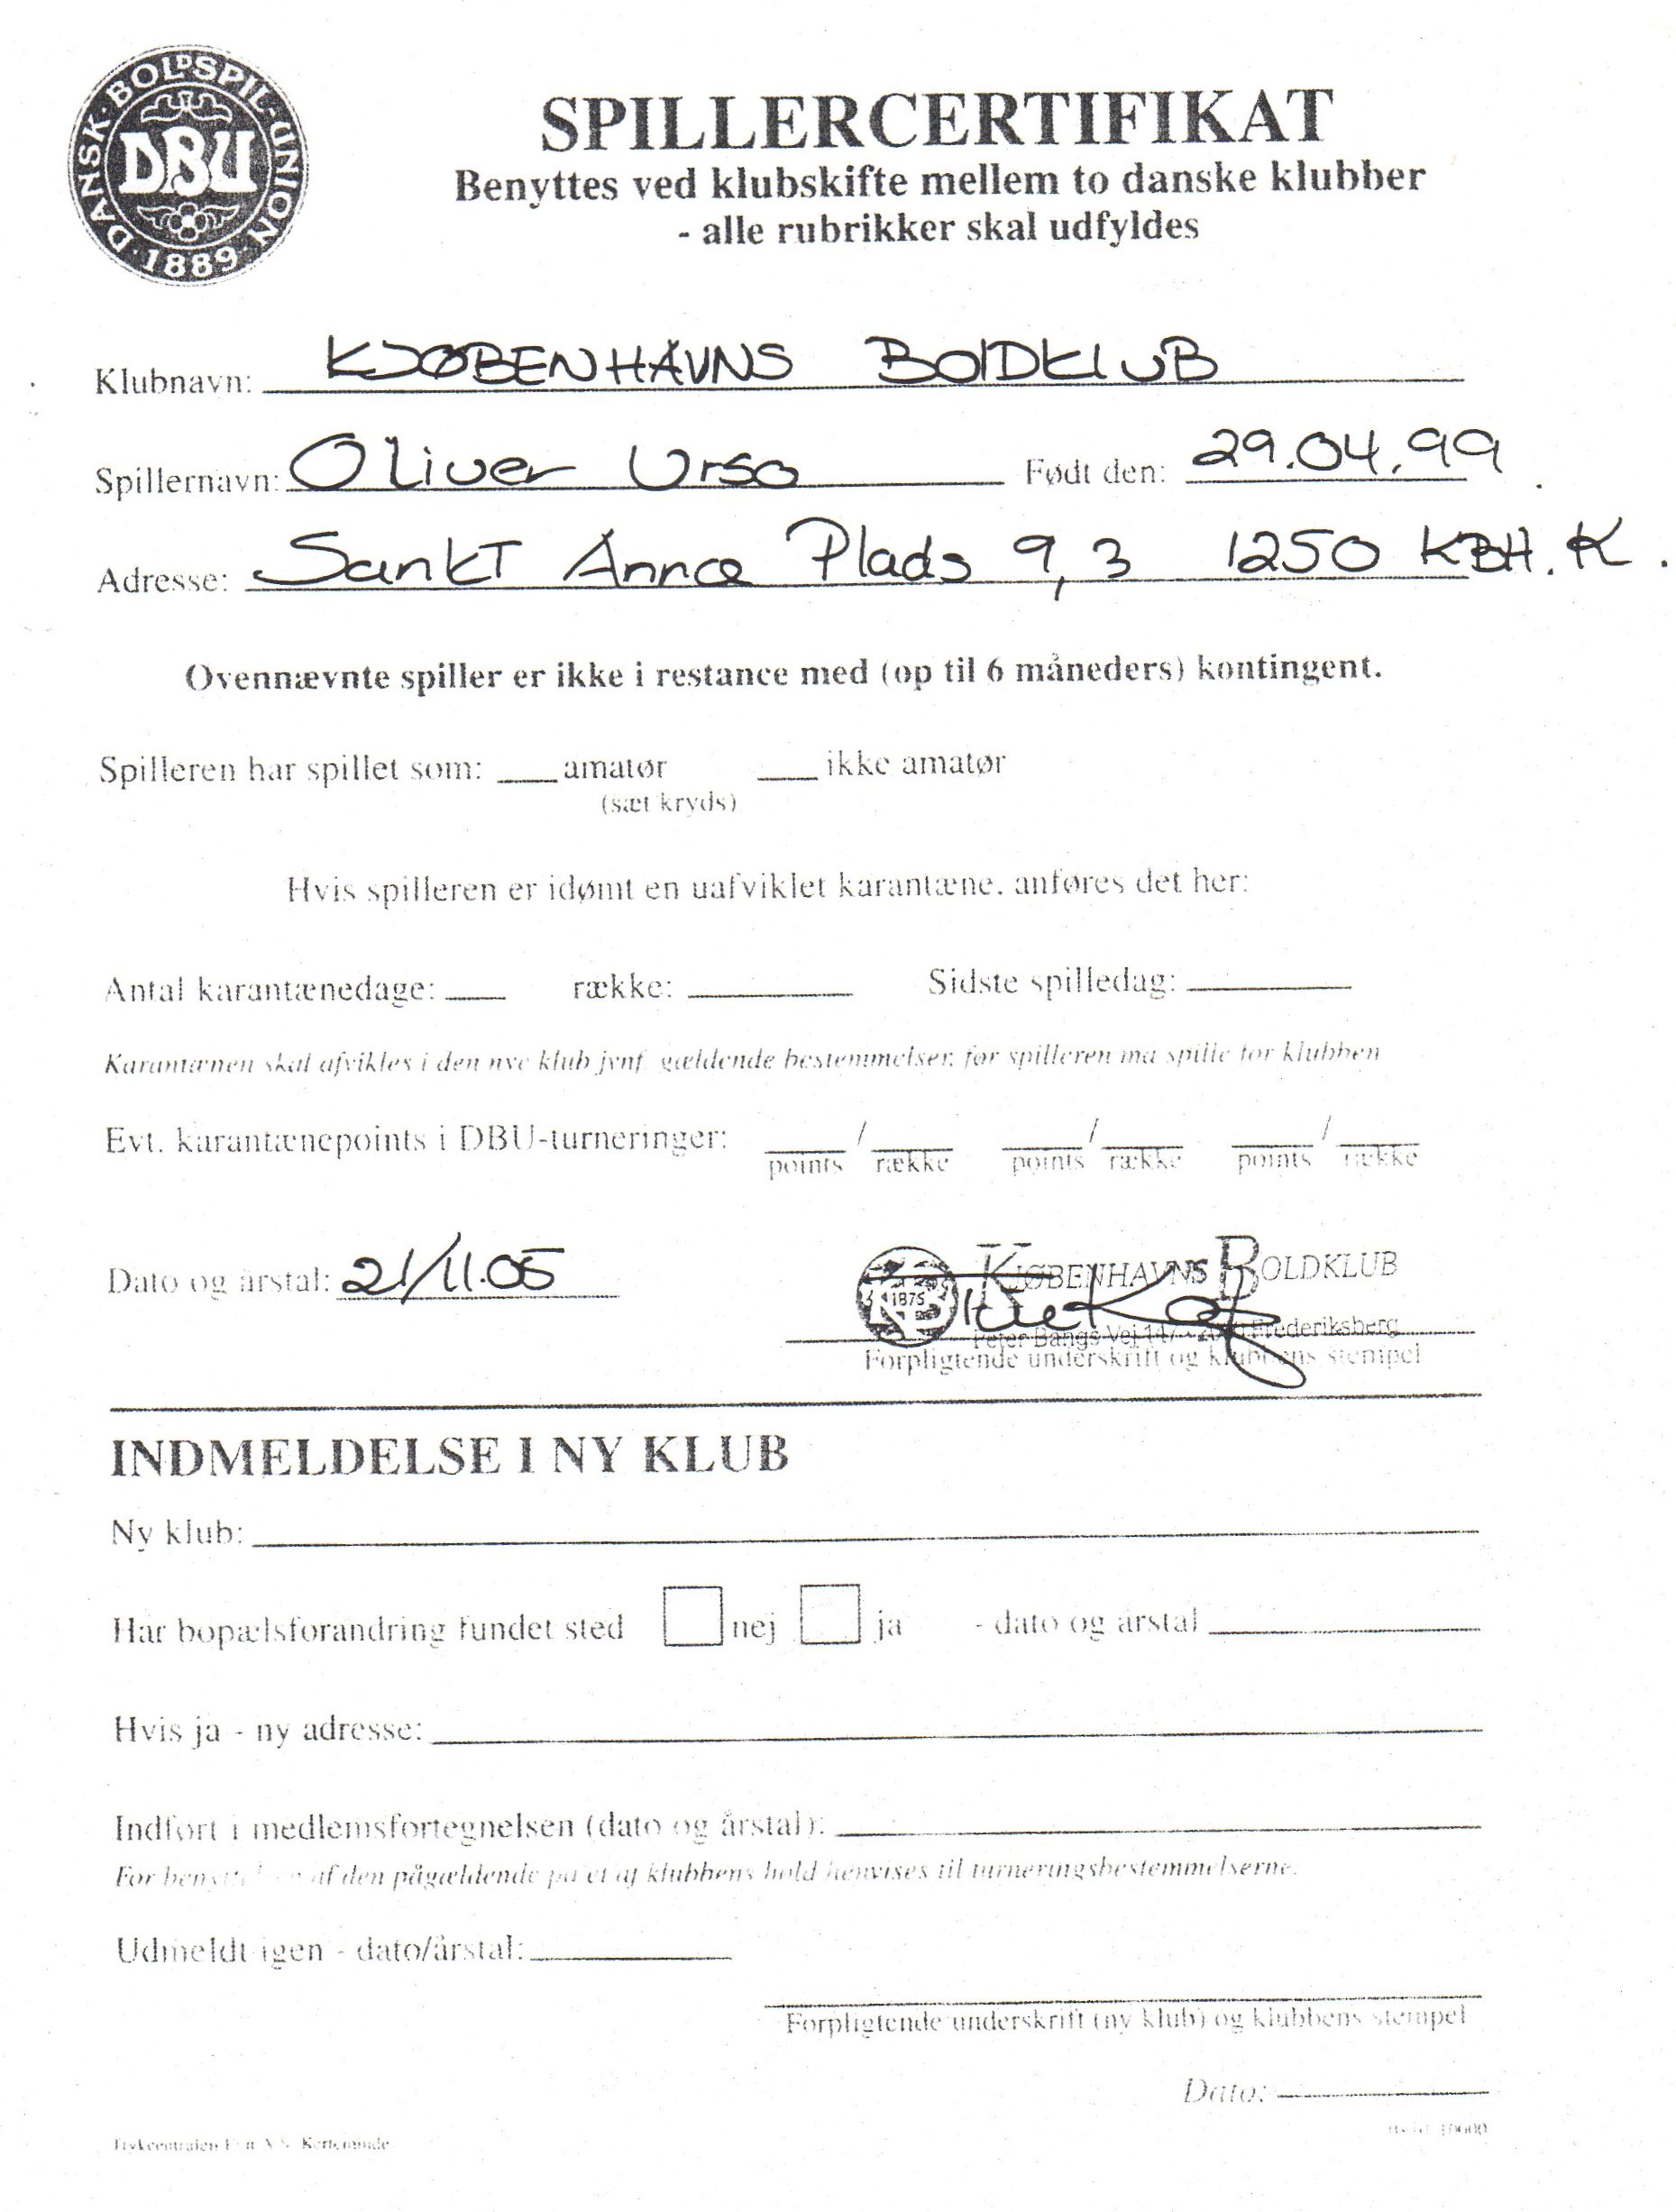 DANSK · BOLDSPIL-UNION · 1889 ·
DBU
SPILLERCERTIFIKAT
Benyttes ved klubskifte mellem to danske klubber
- alle rubrikker skal udfyldes
Klubnavn: KJØBENHAVNS BOLDKLUB
Spillernavn: Oliver Urso Født den: 29.04.99
Adresse: Sankt Annæ Plads 9, 3 1250 KBH. K.
Ovennævnte spiller er ikke i restance med (op til 6 måneders) kontingent.
Spilleren har spillet som: ___ amatør ___ ikke amatør
(sæt kryds)
Hvis spilleren er idømt en uafviklet karantæne, anføres det her:
Antal karantænedage: ___ række: ___ Sidste spilledag: ___
Karantænen skal afvikles i den nye klub jvnf. gældende bestemmelser, før spilleren må spille for klubben
Evt. karantænepoints i DBU-turneringer: ___ / ___ ___ / ___ ___ / ___
points række points række points række
Dato og årstal: 21/11.05
1875 KJØBENHAVNS BOLDKLUB
Peter Bangs Vej 147 - 2000 Frederiksberg
Forpligtende underskrift og klubbens stempel
INDMELDELSE I NY KLUB
Ny klub:
Har bopælsforandring fundet sted nej ja - dato og årstal
Hvis ja - ny adresse:
Indført i medlemsfortegnelsen (dato og årstal):
For af den pågældende på et af klubbens hold henvises til turneringsbestemmelserne.
Udmeldt igen - dato/årstal:
Forpligtende underskrift (ny klub) og klubbens stempel
Dato:
Kerteminde